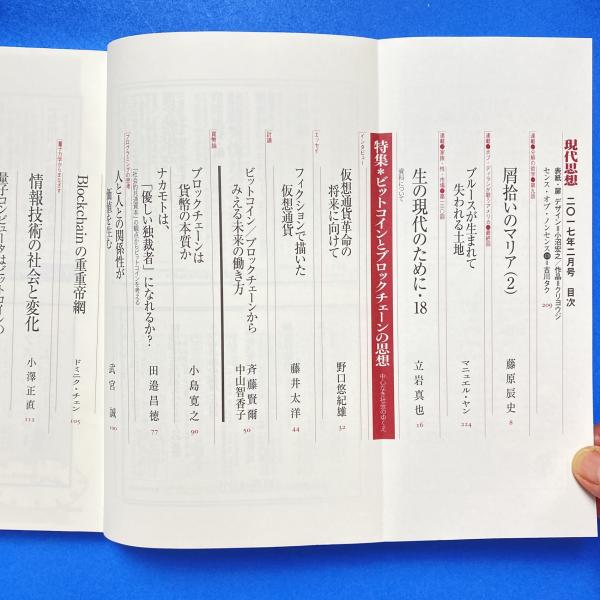 現代思想 二〇一七年二月号 目次
表紙・扉 デザイン＝小沼宏之 作品＝クリヨウジ
センス・オブ・ノンセンス
＝吉川タク
209
屑拾いのマリア（2）
藤原辰史
8
ブルースが生まれて
失われる土地
マニュエル・ヤン
224
生の現代のために・18
資料について
立岩真也
16
特集＊ビットコインとブロックチェーンの思想
中心なき社会のゆくえ
インタビュー
仮想通貨革命の
将来に向けて
野口悠紀雄
32
エッセイ
フィクションで描いた
仮想通貨
藤井太洋
44
討議
ビットコイン／ブロックチェーンから
みえる未来の働き方
斉藤賢爾
中山智香子
50
貨幣論
ブロックチェーンは
貨幣の本質か
小島寛之
90
ナカモトは、
「優しい独裁者」になれるか？
「社会的共通資本」の観点からビットコインを考える
田邉昌徳
77
プログラミングの思考
人と人との関係性が
価値を生む
武宮 誠
Blockchainの重重帝網
ドミニク・チェン
105
量子力学からまなざす
情報技術の社会と変化
小澤正直
112
量子コンピュータはビットコインの